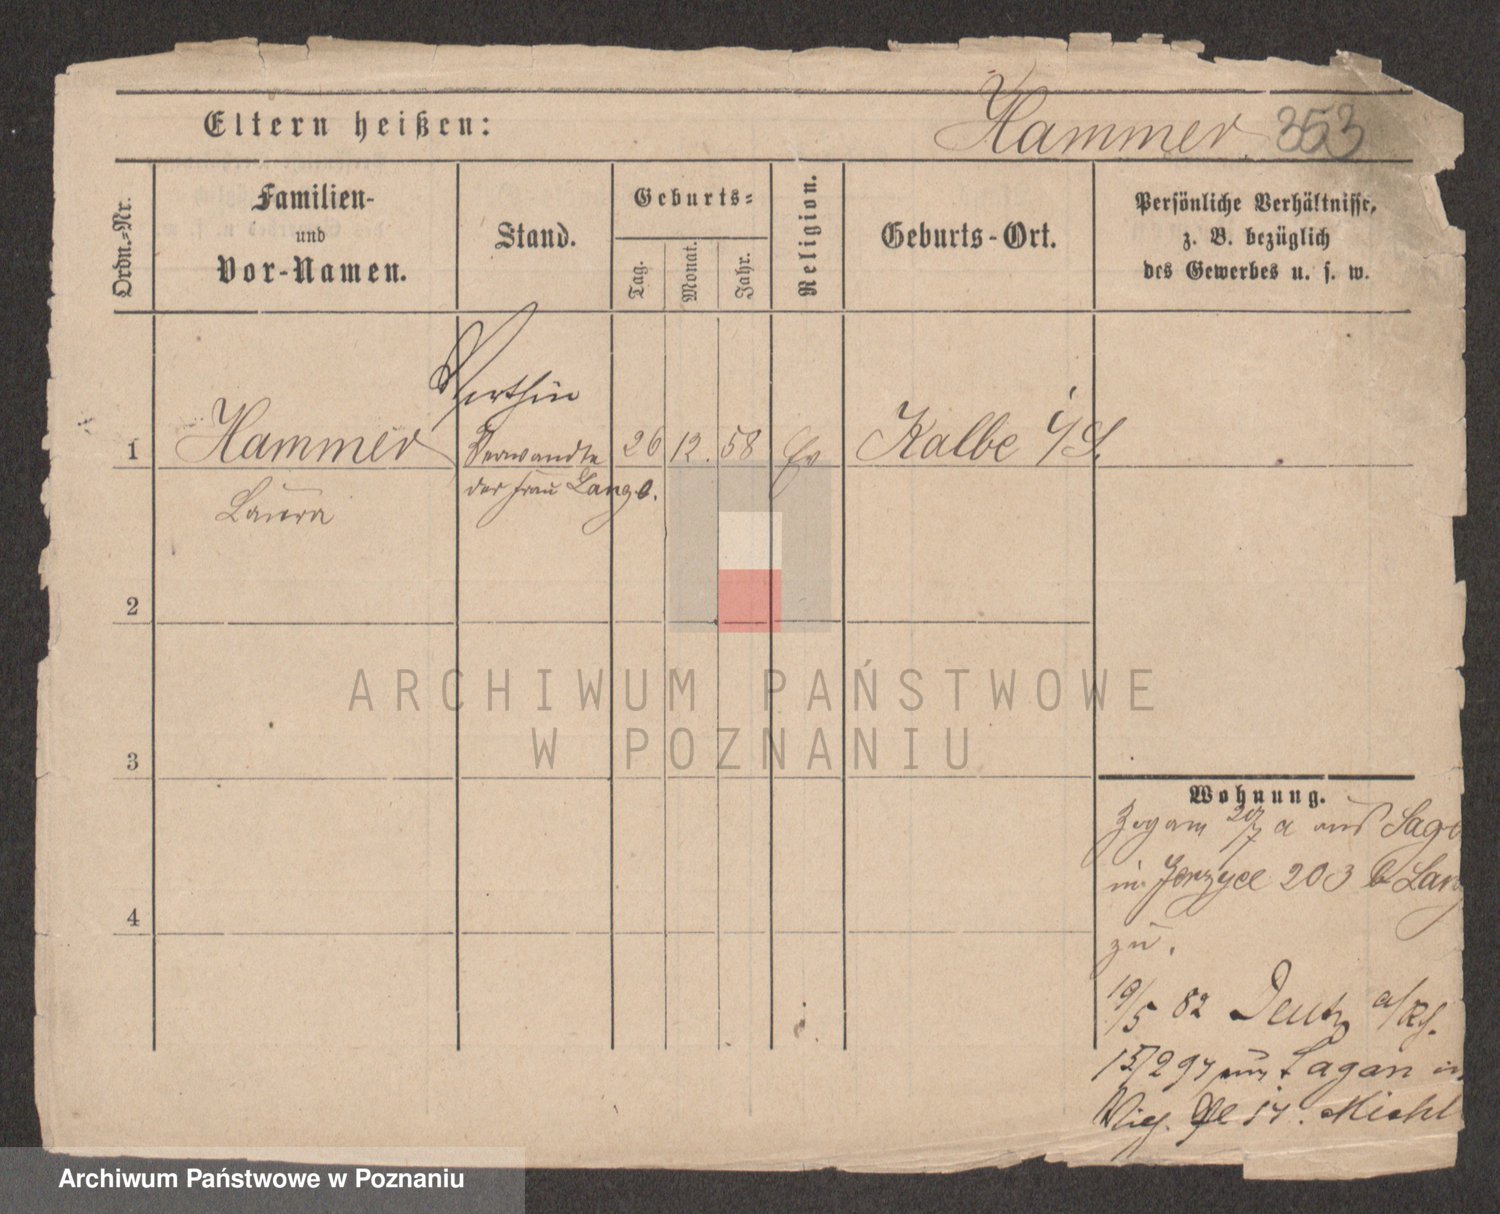 Eltern heißen:
Hammer 353
Ordn.-Nr.
Familien-
und
Vor-Namen.
Stand.
Geburts-
Tag.
Monat.
Jahr.
Religion.
Geburts-Ort.
Persönliche Verhältnisse,
z. B. bezüglich
des Gewerbes u. s. w.
1 Hammer Verwandte 26 12. 58 Ev Kalbe /S.
der Frau Lange.
Laura
2
3
4
ARCHIWUM PAŃSTWOWE
W POZNANIU
Wohnung.
Zog am 20/7 a aus Saga
in Jerzyce 203 b Lang
zu.
19/5 82 Deutz a/Rh.
15/2 97 aus Sagan in
57. Michl
Archiwum Państwowe w Poznaniu